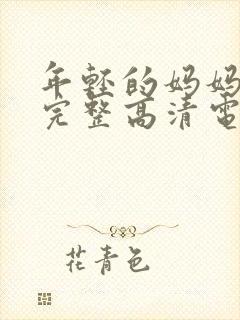 年轻的妈妈
完整高清電
花青色